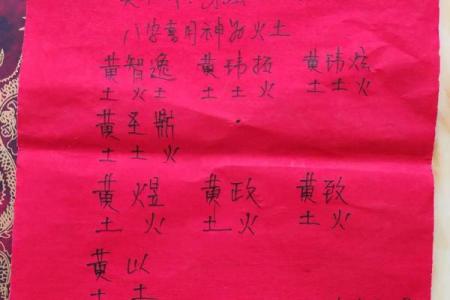 八字喜用神为火土
黄智逸 黄玮扬 黄玮炫
土火土 土土火 土土火
黄圣鼎
土土火
黄煜 黄政 黄致
土火 土火 土火
黄以
土土